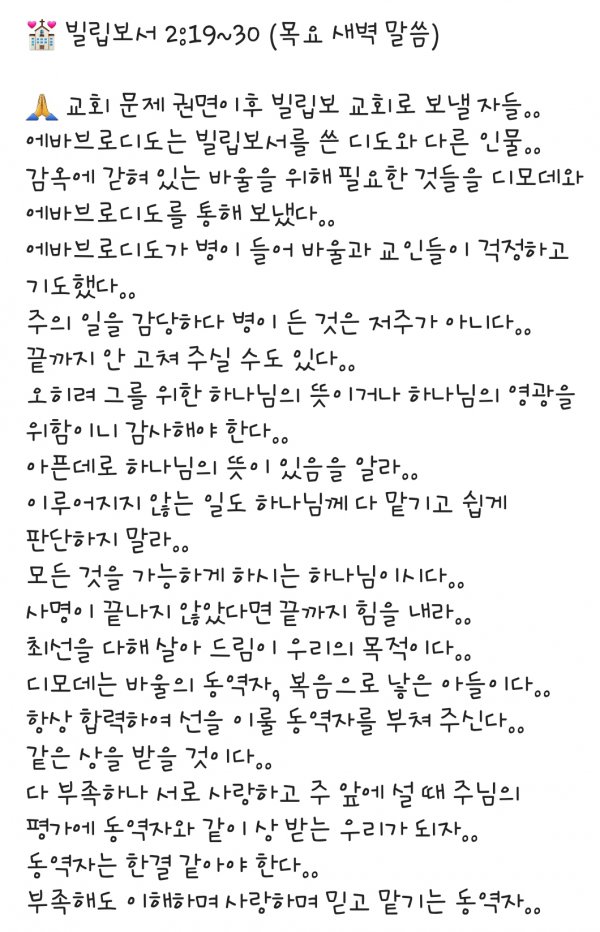 💒 빌립보서 2:19~30 (목요 새벽 말씀)
🙏 교회 문제 권면이후 빌립보 교회로 보낼 자들..
에바브로디도는 빌립보서를 쓴 디도와 다른 인물..
감옥에 갇혀 있는 바울을 위해 필요한 것들을 디모데와
에바브로디도를 통해 보냈다..
에바브로디도가 병이 들어 바울과 교인들이 걱정하고
기도했다..
주의 일을 감당하다 병이 든 것은 저주가 아니다..
끝까지 안 고쳐 주실 수도 있다..
오히려 그를 위한 하나님의 뜻이거나 하나님의 영광을
위함이니 감사해야 한다..
아픈데로 하나님의 뜻이 있음을 알라..
이루어지지 않는 일도 하나님께 다 맡기고 쉽게
판단하지 말라..
모든 것을 가능하게 하시는 하나님이시다..
사명이 끝나지 않았다면 끝까지 힘을 내라..
최선을 다해 살아 드림이 우리의 목적이다..
디모데는 바울의 동역자, 복음으로 낳은 아들이다..
항상 합력하여 선을 이룰 동역자를 부쳐 주신다..
같은 상을 받을 것이다..
다 부족하나 서로 사랑하고 주 앞에 설 때 주님의
평가에 동역자와 같이 상 받는 우리가 되자..
동역자는 한결 같아야 한다..
부족해도 이해하며 사랑하며 믿고 맡기는 동역자..